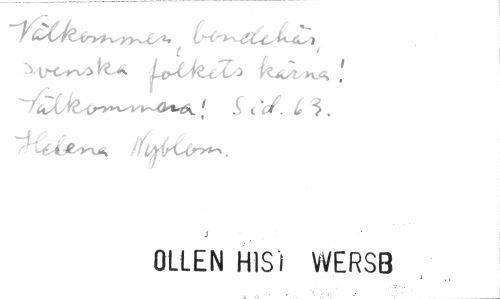 Välkommen, bondehär,
svenska folkets kärna!
Välkomna! Sid. 63.
Helena Nyblom.
OLLEN HIST WERSB